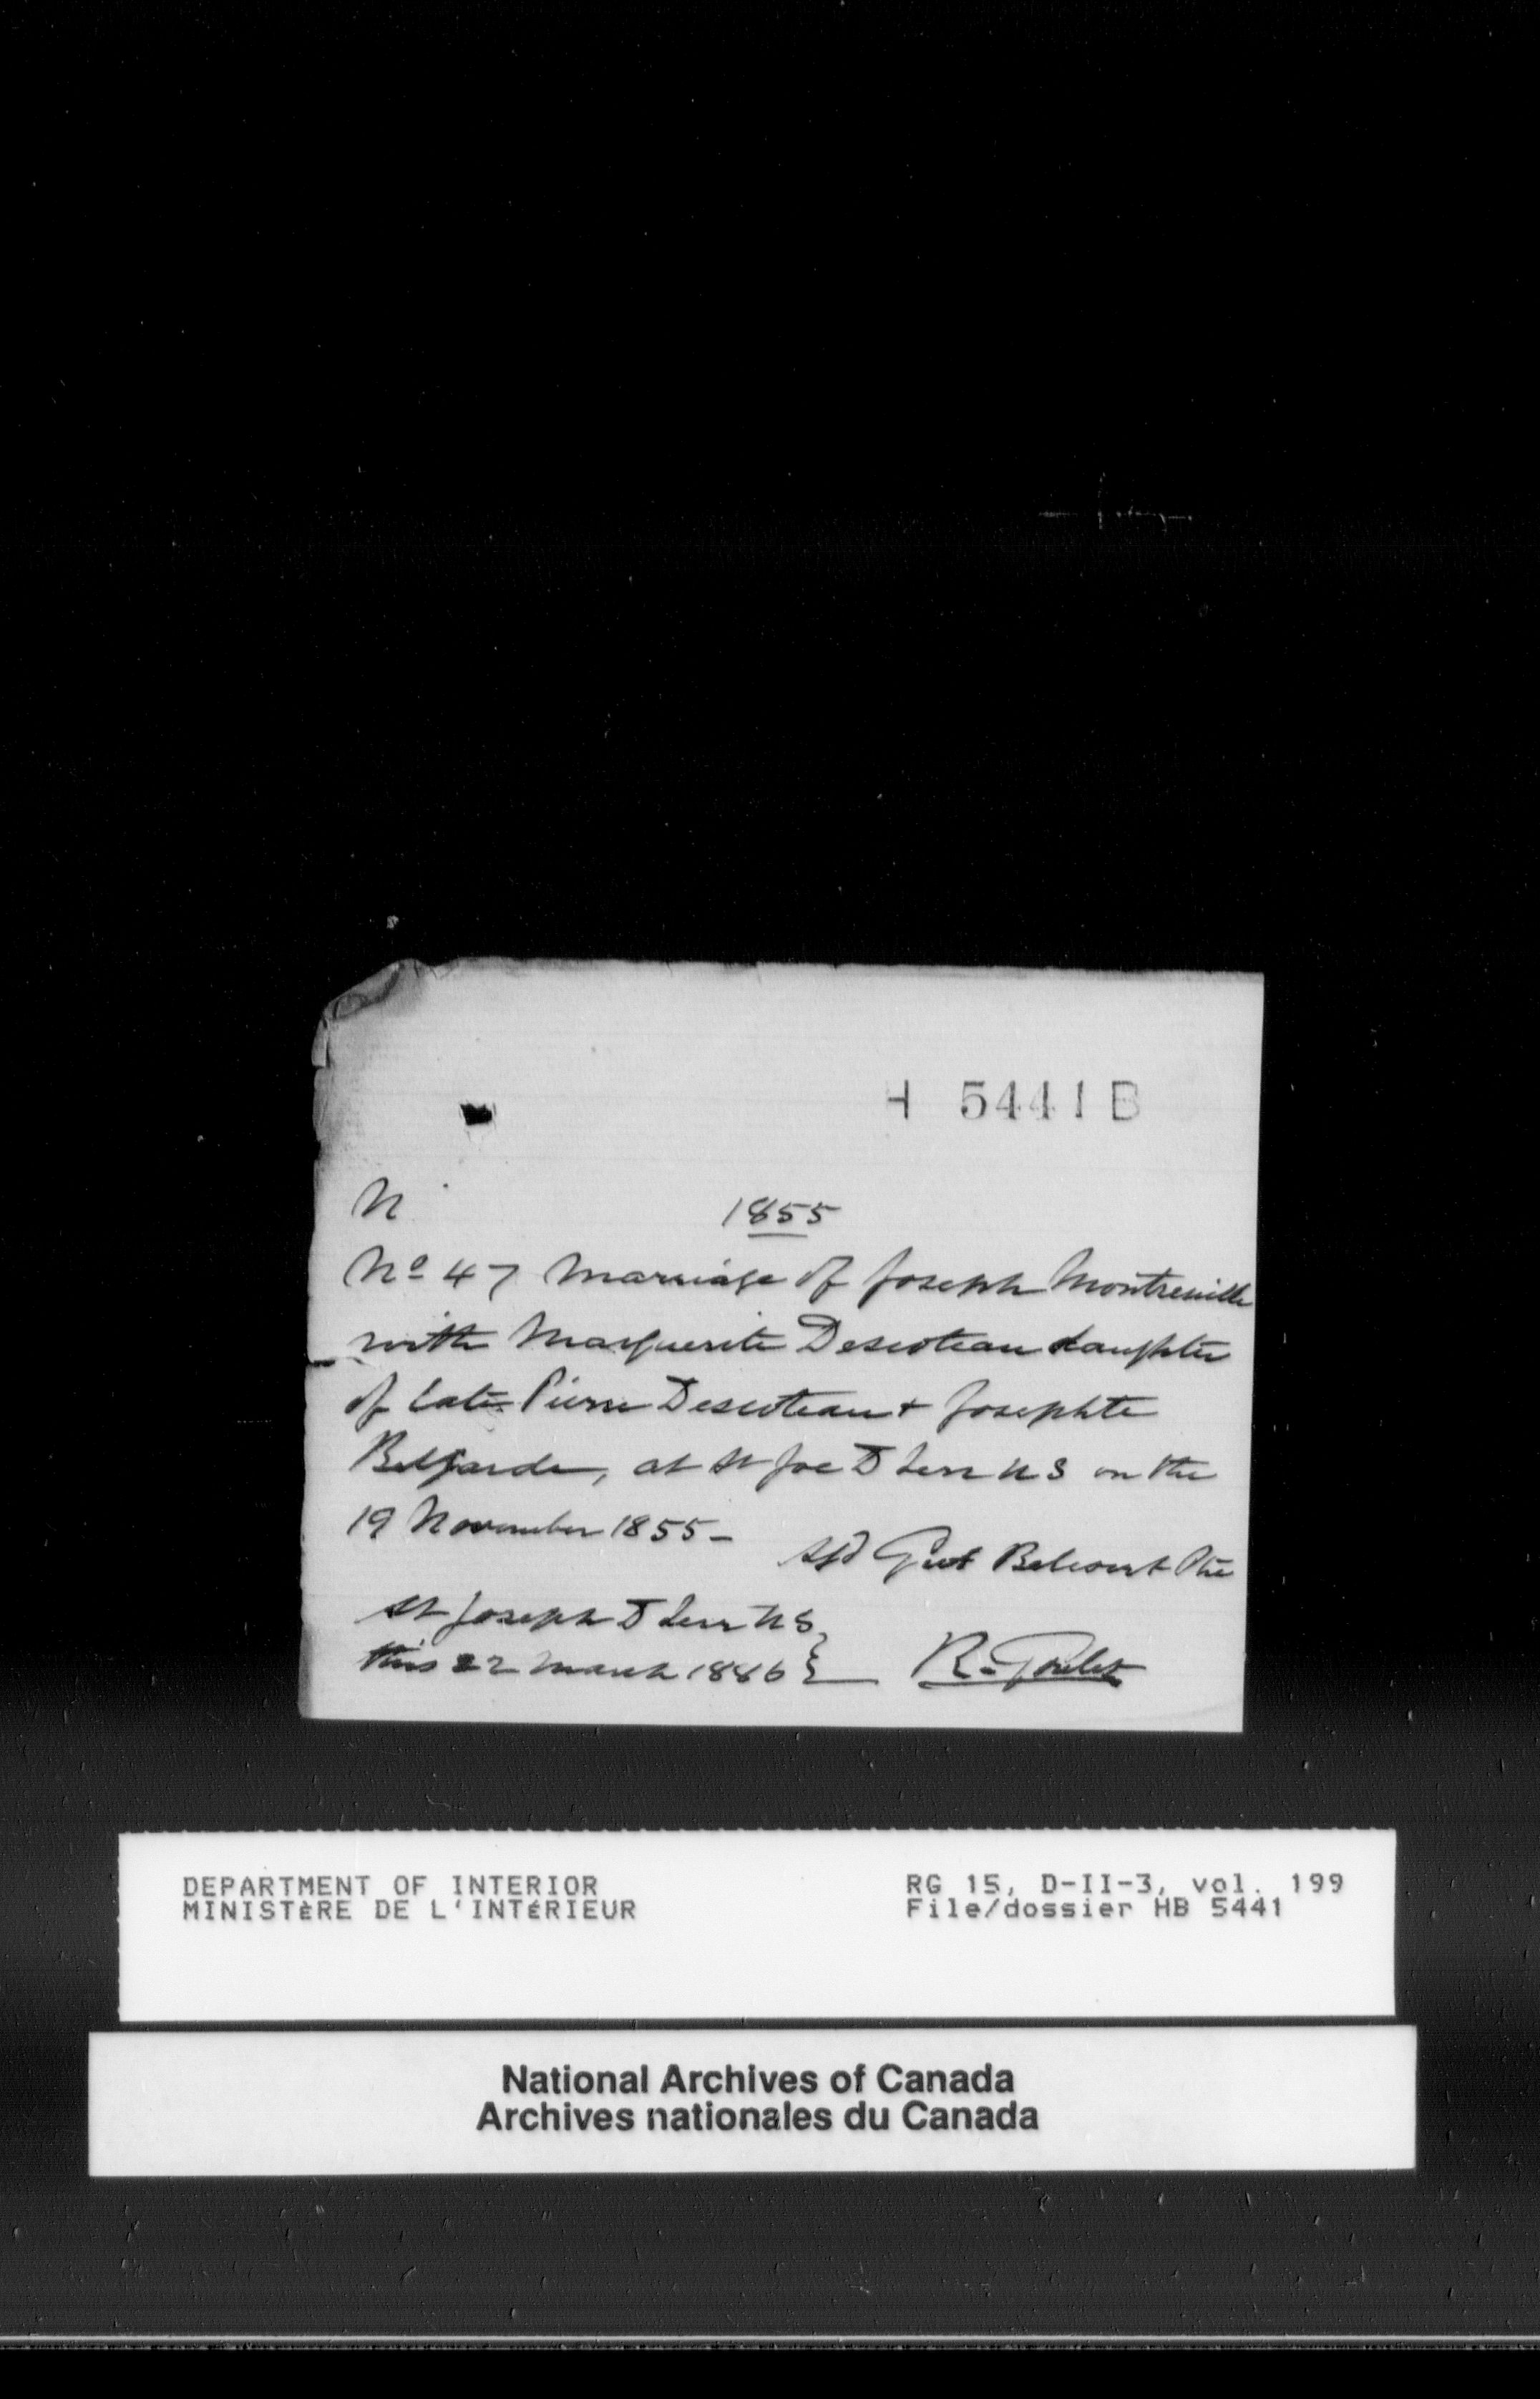 H 5441 B
N
1855
No 47 Marriage of Joseph Montreuille
with Marguerite Descoteau daughter
of late Pierre Descoteau + Josephte
Belgarde, at St Joe D Terr U S on the
19 November 1855 -
Sgd Belcourt Ptre
St Joseph D Terr U S
this 22 March 1886 R. Goulet
DEPARTMENT OF INTERIOR
MINISTÈRE DE L'INTÉRIEUR
RG 15, D-II-3, vol. 199
File/dossier HB 5441
National Archives of Canada
Archives nationales du Canada